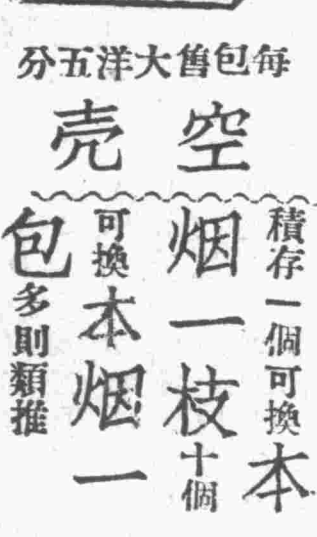 每包售大洋五分
空壳
積存一個可換本
烟一枝十個
可換本烟一
包多則類推